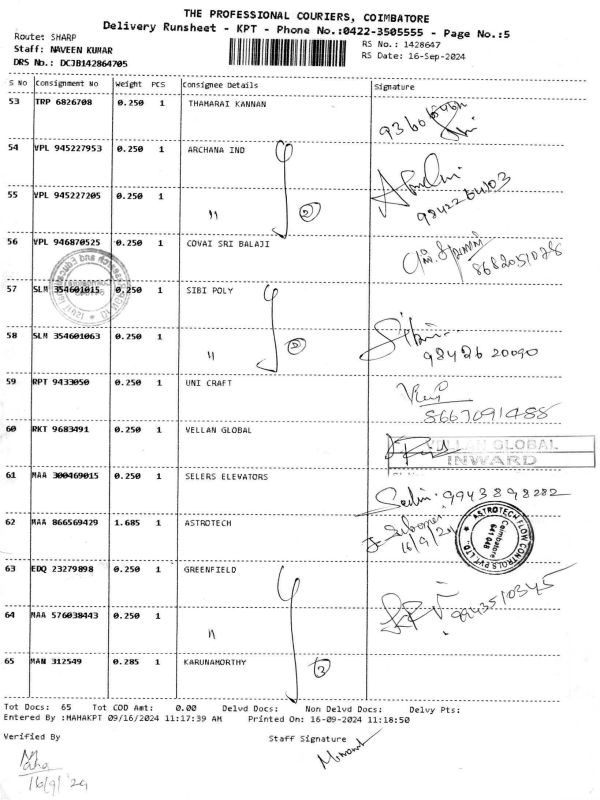 THE PROFESSIONAL COURIERS, COIMBATORE
Delivery Runsheet - KPT - Phone No.:0422-3505555 - Page No.:5
Route: SHARP
Staff: NAVEEN KUMAR
DRS No.: DCJB142864705
RS No.: 1428647
RS Date: 16-Sep-2024
S No Consignment No Weight PCS Consignee Details Signature
53 TRP 6826708 0.250 1 THAMARAI KANNAN
54 VPL 945227953 0.250 1 ARCHANA IND
55 VPL 945227205 0.250 1 "
2
56 VPL 946870525 0.250 1 COVAI SRI BALAJI
8682051028
57 SLM 354601015 0.250 1 SIBI POLY
58 SLM 354601063 0.250 1 "
98426 20090
59 RPT 9433050 0.250 1 UNI CRAFT
8667091488
60 RKT 9683491 0.250 1 VELLAN GLOBAL
VELLAN GLOBAL
INWARD
61 MAA 300469015 0.250 1 SELERS ELEVATORS
9943898282
62 MAA 866569429 1.685 1 ASTROTECH
16/9/24
ASTROTECH FLOW CONTROLS PVT LTD
Coimbatore
641 048
63 EDQ 23279898 0.250 1 GREENFIELD
9943510345
64 MAA 576038443 0.250 1 "
65 MAN 312549 0.285 1 KARUNAMORTHY
3
Tot Docs: 65 Tot COD Amt: 0.00 Delvd Docs: Non Delvd Docs: Delvy Pts:
Entered By :MAHAKPT 09/16/2024 11:17:39 AM Printed On: 16-09-2024 11:18:50
Verified By Staff Signature
Maha
16/9/24